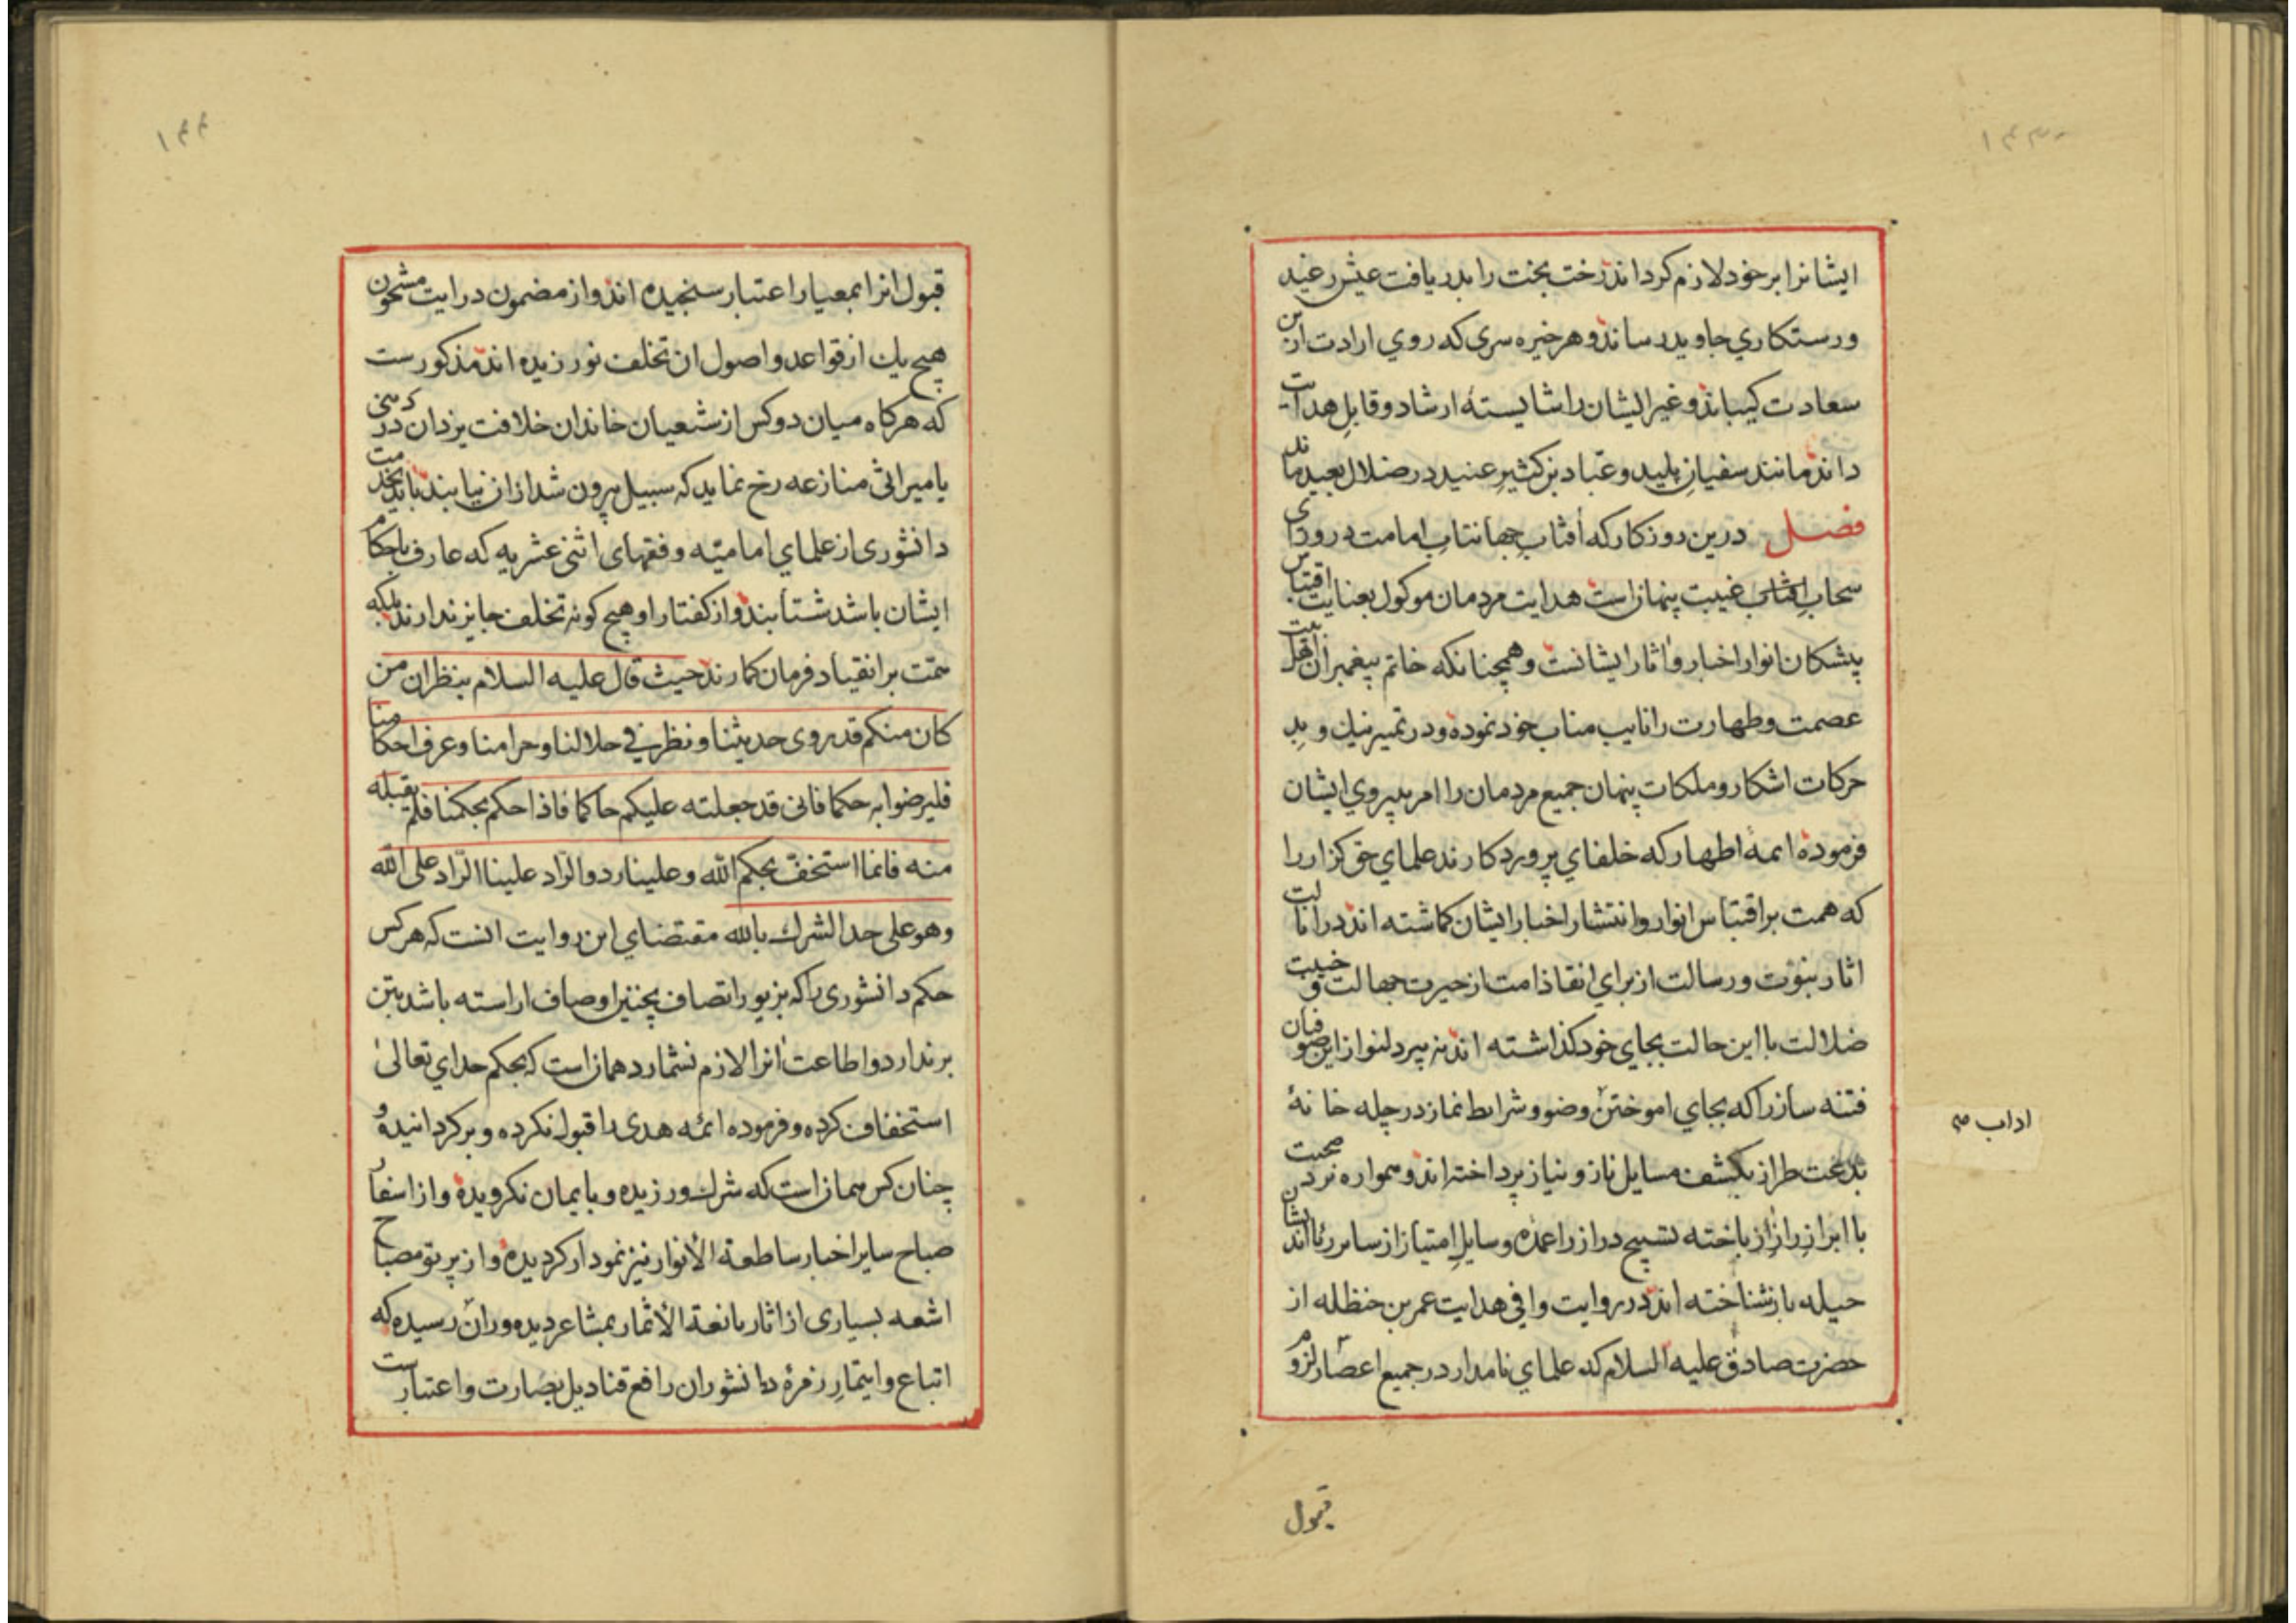 ایشانرا بر خود لازم کرداند رخت بخت را بدریافت عیش رغید
و رستکاري جاوید رساند و هر خیره سری که روي ارادت ازین
سعادت کیباند و غیر ایشان را شایستهٔ ارشاد و قابلِ هدایت
داند مانند سفیانِ پلید و عبّاد بن کثیرِ عنید در ضلال بعید ماند
فصل درین روزکار که آفتابِ جهانتابِ امامت در وراي
سحابِ غیبت پنهانست هدایت مردمان موکول بعنایت اقتباس
پیشکان انوار اخبار و آثار ایشانست و همچنانکه خاتم پیغمبران اهل بیت
عصمت و طهارت را نایب مناب خود نموده و در تمیز نیك و بدِ
حرکات اشکار و ملکات پنهان جمیع مردمان را امر به پیروي ایشان
فرموده ائمهٔ اطهار که خلفاي پروردکارند علماي حق کزار را
که همت بر اقتباس انوار و انتشار اخبار ایشان کماشته اند در ایالت
اثار نبوّت و رسالت از براي انقاذ امت از حیرت جهالت و خیبت
ضلالت با این حالت بجاي خود کذاشته اند نه پیر دلنواز این صوفیان
فتنه ساز را که بجاي اموختن وضو و شرایط نماز در چله خانهٔ
اداب
بدعت طراز بکشف مسایل ناز و نیاز پرداخته اند و همواره نرد محبت
با ابرازِ رازِ از باخته تسبیح دراز را عمده وسایلِ امتیاز از سایر
حیله باز شناخته اند در روایت وافي هدایت عمر بن حنظله از
حضرت صادق علیه السلام که علماي نامدار در جمیع اعصار لزوم
قبول
قبول انرا بمعیار اعتبار سنجیده اند و از مضمون درایت مشحون
هیچ یك از قواعد و اصول ان تخلف نورزیده اند مذکورست
که هرکاه میان دو کس از شیعیان خاندان خلافت یزدان در دینی
یا میراثی منازعه رخ نماید که سبیل بیرون شد ازان نیابند باید بخدمت
دانشوری از علماي امامیّه و فقهای اثنی عشریه که عارف باحکام
ایشان باشد شتابند و از کفتار او هیچ کونه تخلف جایز ندارند بلکه
همّت بر انقیاد فرمان کمارند حیث قال علیه السلام ینظران من
کان منکم قد روی حدیثنا و نظر في حلالنا و حرامنا و عرف احکامنا
فلیرضوا به حکما فانی قد جعلته علیکم حاکما فاذا حکم بحکمنا فلم یقبله
منه فانما استخفّ بحکم الله و علینا رد و الرّاد علینا الرّاد علی الله
و هو علی حد الشرك بالله مقتضاي این روایت انست که هر کس
حکم دانشوری را که بزیور اتصاف بچنین اوصاف اراسته باشد بتن
بر ندارد و اطاعت انرا لازم نشمارد همانست که بحکم خداي تعالیٰ
استخفاف کرده و فرموده ائمه هدی را قبول نکرده و برکردانیده و
چنان کس همانست که شرك ورزیده و بایمان نکرویده و از اسفار
صباح سایر اخبار ساطعة الأنوار نیز نمودار کردیده و از پرتو مصباح
اشعه بسیاری از اثار یانعة الأثمار بمشاعر دیده وران رسیده که
اتباع و ایتمارِ زمرهٔ دانشوران رافع قنادیل بصارت و اعتبارست